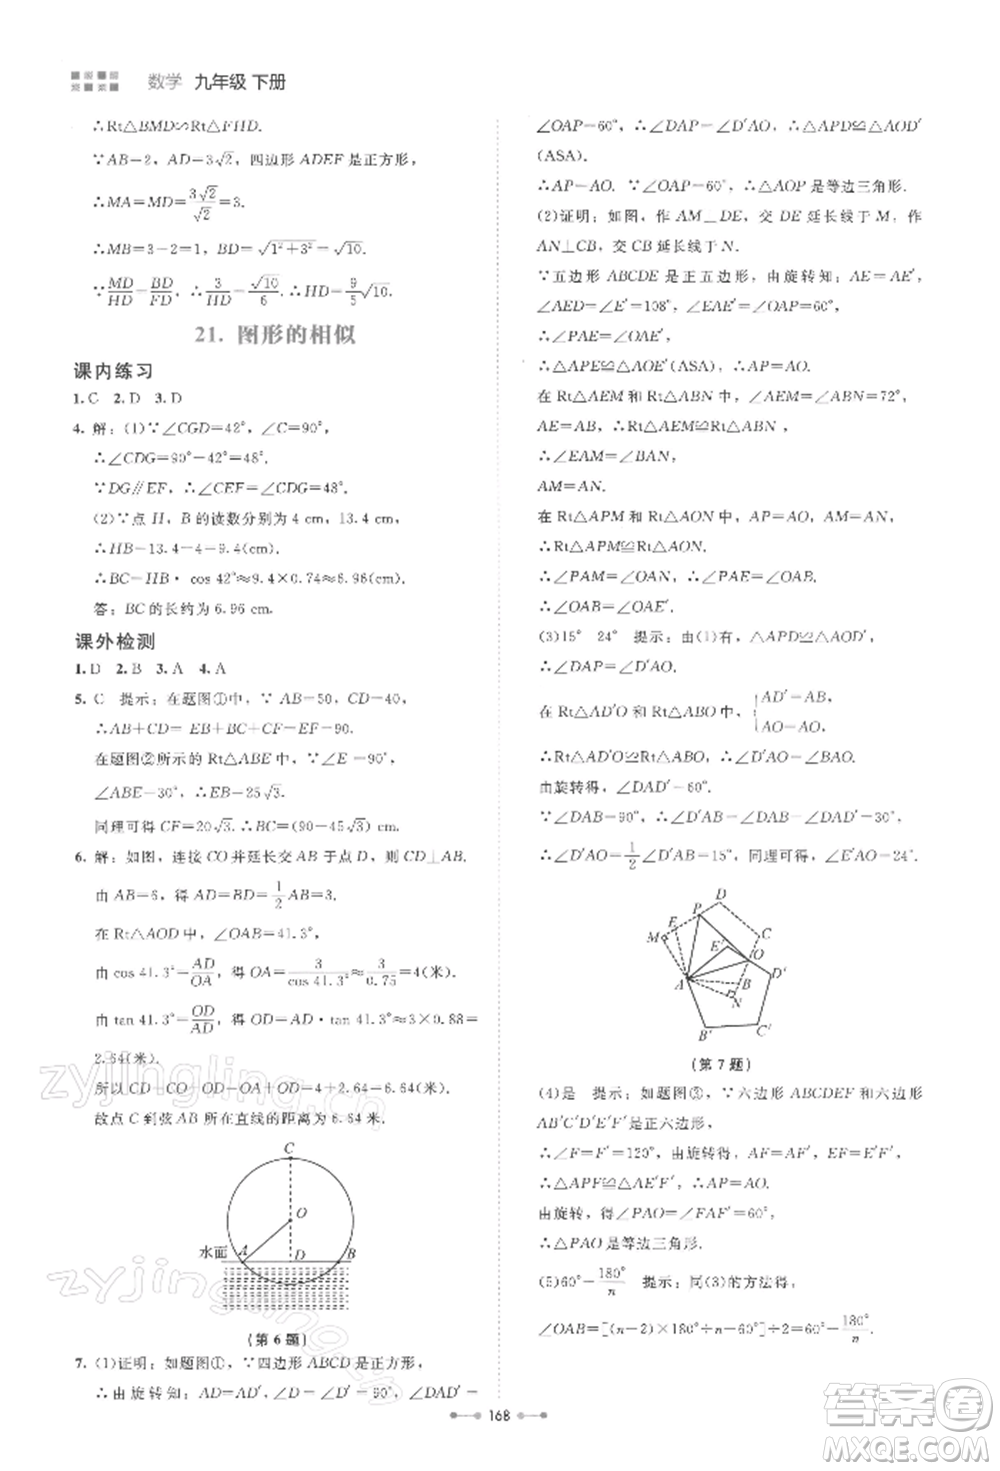 数学 九年级 下册
∴Rt△BMD∽Rt△FHD.
∵AB=2，AD=3√2，四边形 ADEF 是正方形，
∴MA=MD=3√2/√2=3.
∴MB=3-2=1，BD=√(1²+3²)=√10.
∵MD/HD=BD/FD，∴3/HD=√10/6.∴HD=9/5√10.
21. 图形的相似
课内练习
1.C 2.D 3.D
4. 解：(1)∵∠CGD=42°，∠C=90°，
∴∠CDG=90°-42°=48°.
∵DG∥EF，∴∠CEF=∠CDG=48°.
(2)∵点 H，B 的读数分别为 4 cm，13.4 cm，
∴HB=13.4-4=9.4(cm).
∴BC=HB·cos 42°≈9.4×0.74≈6.96(cm).
答：BC的长约为 6.96 cm.
课外检测
1.D 2.B 3.A 4.A
5. C 提示：在题图①中，∵AB=50，CD=40，
∴AB+CD=EB+BC+CF=EF=90.
在题图②所示的 Rt△ABE 中，∵∠E=90°，
∠ABE=30°，∴EB=25√3.
同理可得 CF=20√3.∴BC=(90-45√3)cm.
6. 解：如图，连接 CO 并延长交 AB 于点 D，则 CD⊥AB.
由 AB=6，得 AD=BD=1/2AB=3.
在 Rt△AOD 中，∠OAB=41.3°，
由 cos 41.3°=AD/OA，得 OA=3/cos 41.3°≈3/0.75=4(米).
由 tan 41.3°=OD/AD，得 OD=AD·tan 41.3°≈3×0.88=
2.64(米).
所以 CD=CO+OD=OA+OD=4+2.64=6.64(米).
故点 C 到弦 AB 所在直线的距离为 6.64 米.
C
O
水面 A D B
(第 6 题)
7. (1)证明：如题图①，∵四边形 ABCD 是正方形，
∴由旋转知：AD=AD′，∠D=∠D′=90°，∠DAD′=
∠OAP=60°，∴∠DAP=∠D′AO，∴△APD≌△AOD′
(ASA).
∴AP=AO. 又∵∠OAP=60°，∴△AOP是等边三角形.
(2)证明：如图，作 AM⊥DE，交 DE 延长线于 M，作
AN⊥CB，交 CB 延长线于 N.
∵五边形 ABCDE 是正五边形，由旋转知：AE=AE′，
∠AED=∠E′=108°，∠EAE′=∠OAP=60°.
∴∠PAE=∠OAE′.
∴△APE≌△AOE′(ASA).∴AP=AO.
在 Rt△AEM 和 Rt△ABN 中，∠AEM=∠ABN=72°，
AE=AB，∴Rt△AEM≌Rt△ABN.
∴∠EAM=∠BAN，
AM=AN.
在 Rt△APM 和 Rt△AON 中，AP=AO，AM=AN.
∴Rt△APM≌Rt△AON.
∴∠PAM=∠OAN.∴∠PAE=∠OAB.
∴∠OAB=∠OAE′.
(3)15° 24° 提示：由(1)有，△APD≌△AOD′，
∴∠DAP=∠D′AO.
在 Rt△AD′O 和 Rt△ABO 中，{AD′=AB，
AO=AO.
∴Rt△AD′O≌Rt△ABO.∴∠D′AO=∠BAO.
由旋转得，∠DAD′=60°.
∵∠DAB=90°，∴∠D′AB=∠DAB-∠DAD′=30°.
∴∠D′AO=1/2∠D′AB=15°，同理可得，∠E′AO=24°.
D
P
E
M C
E′
O
D′
A B
N
B′ C′
(第 7 题)
(4)是 提示：如题图③，∵六边形 ABCDEF 和六边形
AB′C′D′E′F′是正六边形，
∴∠F=∠F′=120°，由旋转得，AF=AF′，∠EAF=∠E′AF′.
∴△APF≌△AE′F′.∴∠PAF=∠E′AF′，AP=AO.
由旋转，得∠PAO=∠FAF′=60°，
∴△PAO是等边三角形.
(5)60°-180°/n 提示：同(3)的方法得，
∠OAB=[(n-2)×180°÷n-60°]÷2=60°-180°/n.
168
zyjingling.cn
zyjingling.cn
答案圈
MXQE.COM